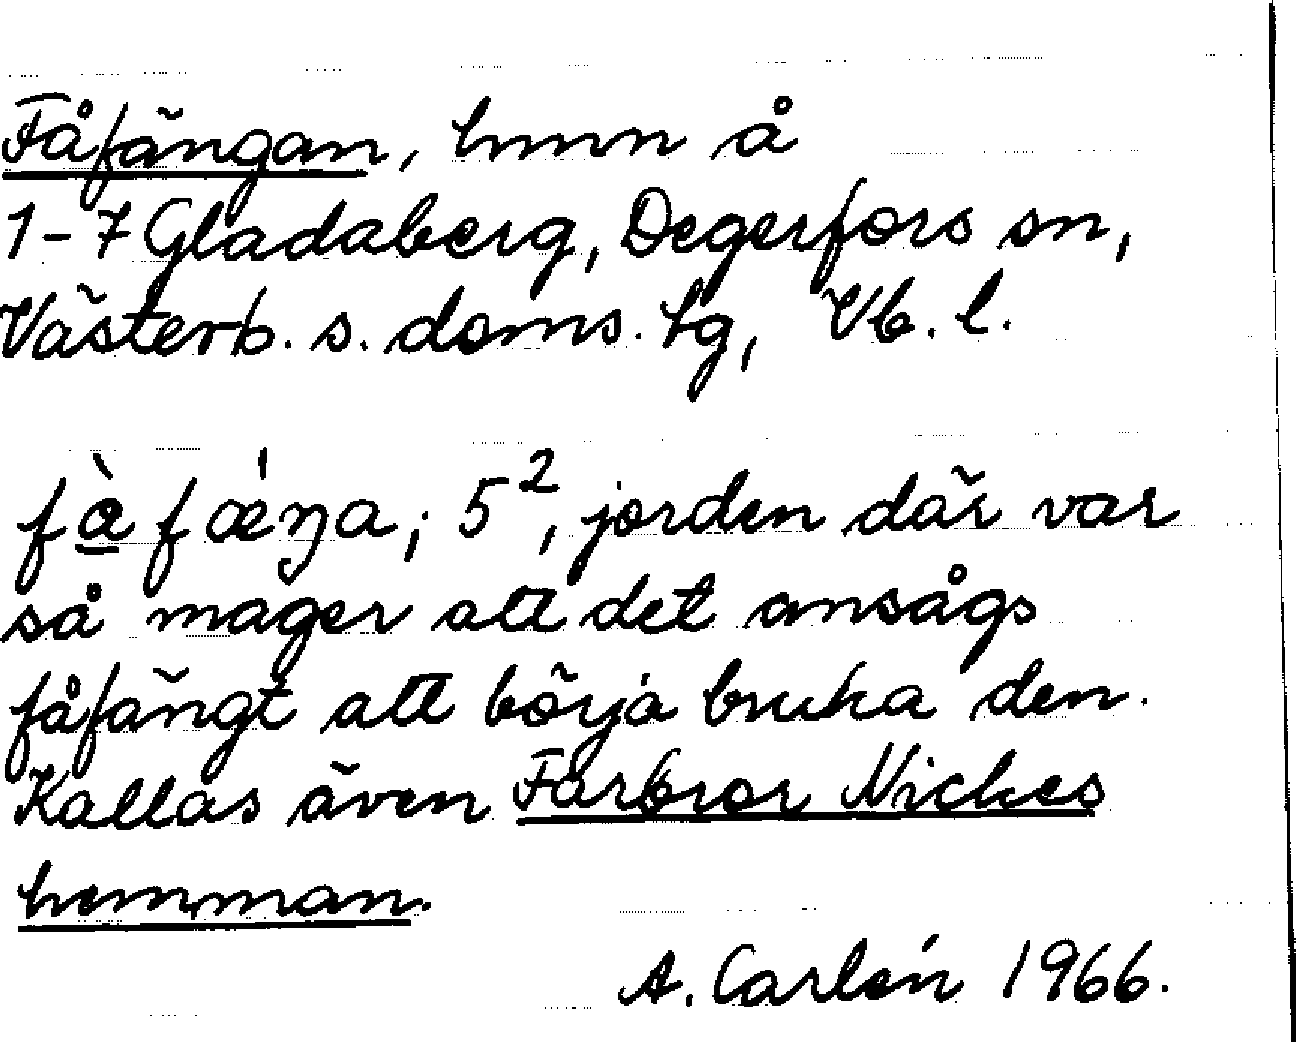 Fåfängan, hmn å
1-7 Gladaberg, Degerfors sn,
Västerb. s. doms. tg, Vb. l.
fà̲fǽŋa; 5², jorden där var
så mager att det ansågs
fåfängt att börja bruka den.
Kallas även Farbror Nickes
hemman.
A. Carlén 1966.